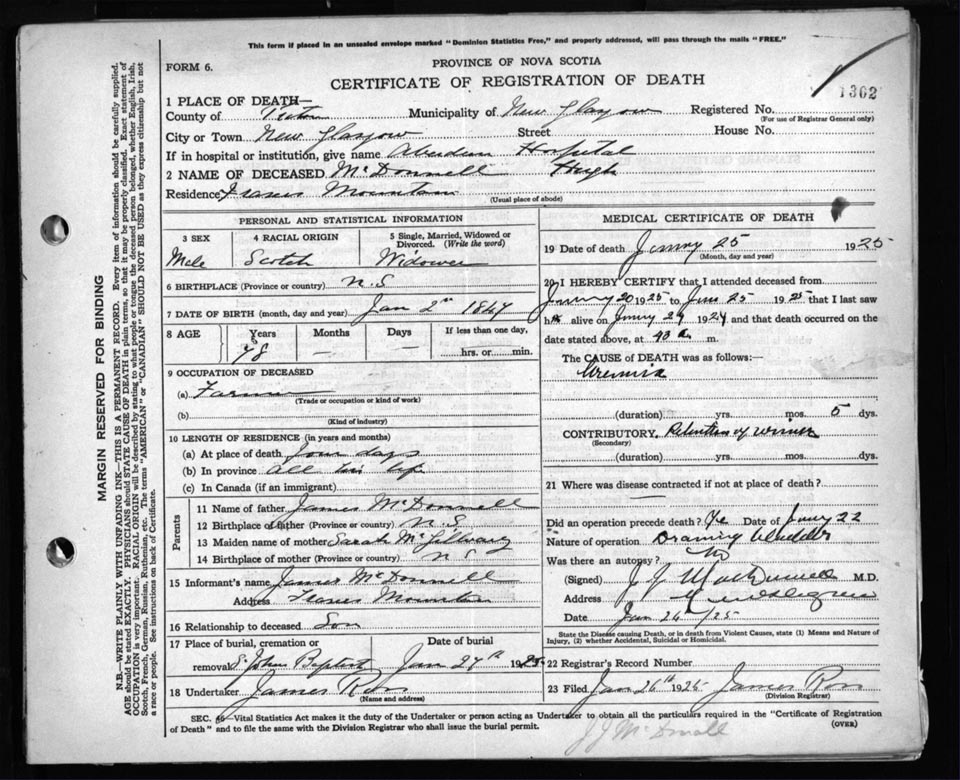 This form if placed in an unsealed envelope marked "Dominion Statistics Free," and properly addressed, will pass through the mails "FREE."
FORM 6.
PROVINCE OF NOVA SCOTIA
CERTIFICATE OF REGISTRATION OF DEATH
1302
1 PLACE OF DEATH—
County of Pictou Municipality of New Glasgow Registered No.
(For use of Registrar General only)
City or Town New Glasgow Street House No.
If in hospital or institution, give name Aberdeen Hospital
2 NAME OF DECEASED McDonnell Hugh
Residence Frasers Mountain
(Usual place of abode)
PERSONAL AND STATISTICAL INFORMATION
3 SEX
Male
4 RACIAL ORIGIN
Scotch
5 Single, Married, Widowed or Divorced. (Write the word)
Widower
6 BIRTHPLACE (Province or country) N.S
7 DATE OF BIRTH (month, day and year) Jan 2nd 1847
8 AGE Years Months Days If less than one day,
78 — — hrs. or min.
9 OCCUPATION OF DECEASED
(a) Farmer
(Trade or occupation or kind of work)
(b)
(Kind of industry)
10 LENGTH OF RESIDENCE (in years and months)
(a) At place of death four days
(b) In province all his life
(c) In Canada (if an immigrant)
Parents
11 Name of father James McDonnell
12 Birthplace of father (Province or country) N.S
13 Maiden name of mother Sarah McGillivary
14 Birthplace of mother (Province or country) N S
15 Informant's name James McDonnell
Address Frasers Mountain
16 Relationship to deceased Son
17 Place of burial, cremation or removal St Johns Baptist
Date of burial
Jan 27th 1925
18 Undertaker James Ross
(Name and address)
MEDICAL CERTIFICATE OF DEATH
19 Date of death 25 1925
(Month, day and year)
20 I HEREBY CERTIFY that I attended deceased from
20 1925 to 25 1925 that I last saw
h alive on 24 1924 and that death occurred on the
date stated above, at m.
The CAUSE of DEATH was as follows:
Uremia
(duration) yrs. mos. 5 dys.
CONTRIBUTORY. Retention of urine
(Secondary)
(duration) yrs. mos. dys.
21 Where was disease contracted if not at place of death?
Did an operation precede death? Date of 22
Nature of operation Draining bladder
Was there an autopsy? No
(Signed) M.D.
Address
Date Jan 26th/25
State the Disease causing Death, or in death from Violent Causes, state (1) Means and Nature of
Injury, (2) whether Accidental, Suicidal or Homicidal.
22 Registrar's Record Number
23 Filed Jan 26th 1925 James Ross
(Division Registrar)
SEC. —Vital Statistics Act makes it the duty of the Undertaker or person acting as Undertaker to obtain all the particulars required in the "Certificate of Registration
of Death" and to file the same with the Division Registrar who shall issue the burial permit.
(OVER)
J J McDonall
MARGIN RESERVED FOR BINDING
N.B.—WRITE PLAINLY WITH UNFADING INK—THIS IS A PERMANENT RECORD. Every item of information should be carefully supplied.
AGE should be stated EXACTLY. PHYSICIANS should STATE CAUSE OF DEATH in plain terms, so that it may be properly classified. Exact statement of
OCCUPATION is very important. RACIAL ORIGIN will be described by stating to what people or tongue the deceased person belonged, whether English, Irish,
Scotch, French, German, Russian, Ruthenian, etc. The terms "AMERICAN" or "CANADIAN" SHOULD NOT BE USED as they express citizenship but not
a race or people. See instructions on back of Certificate.